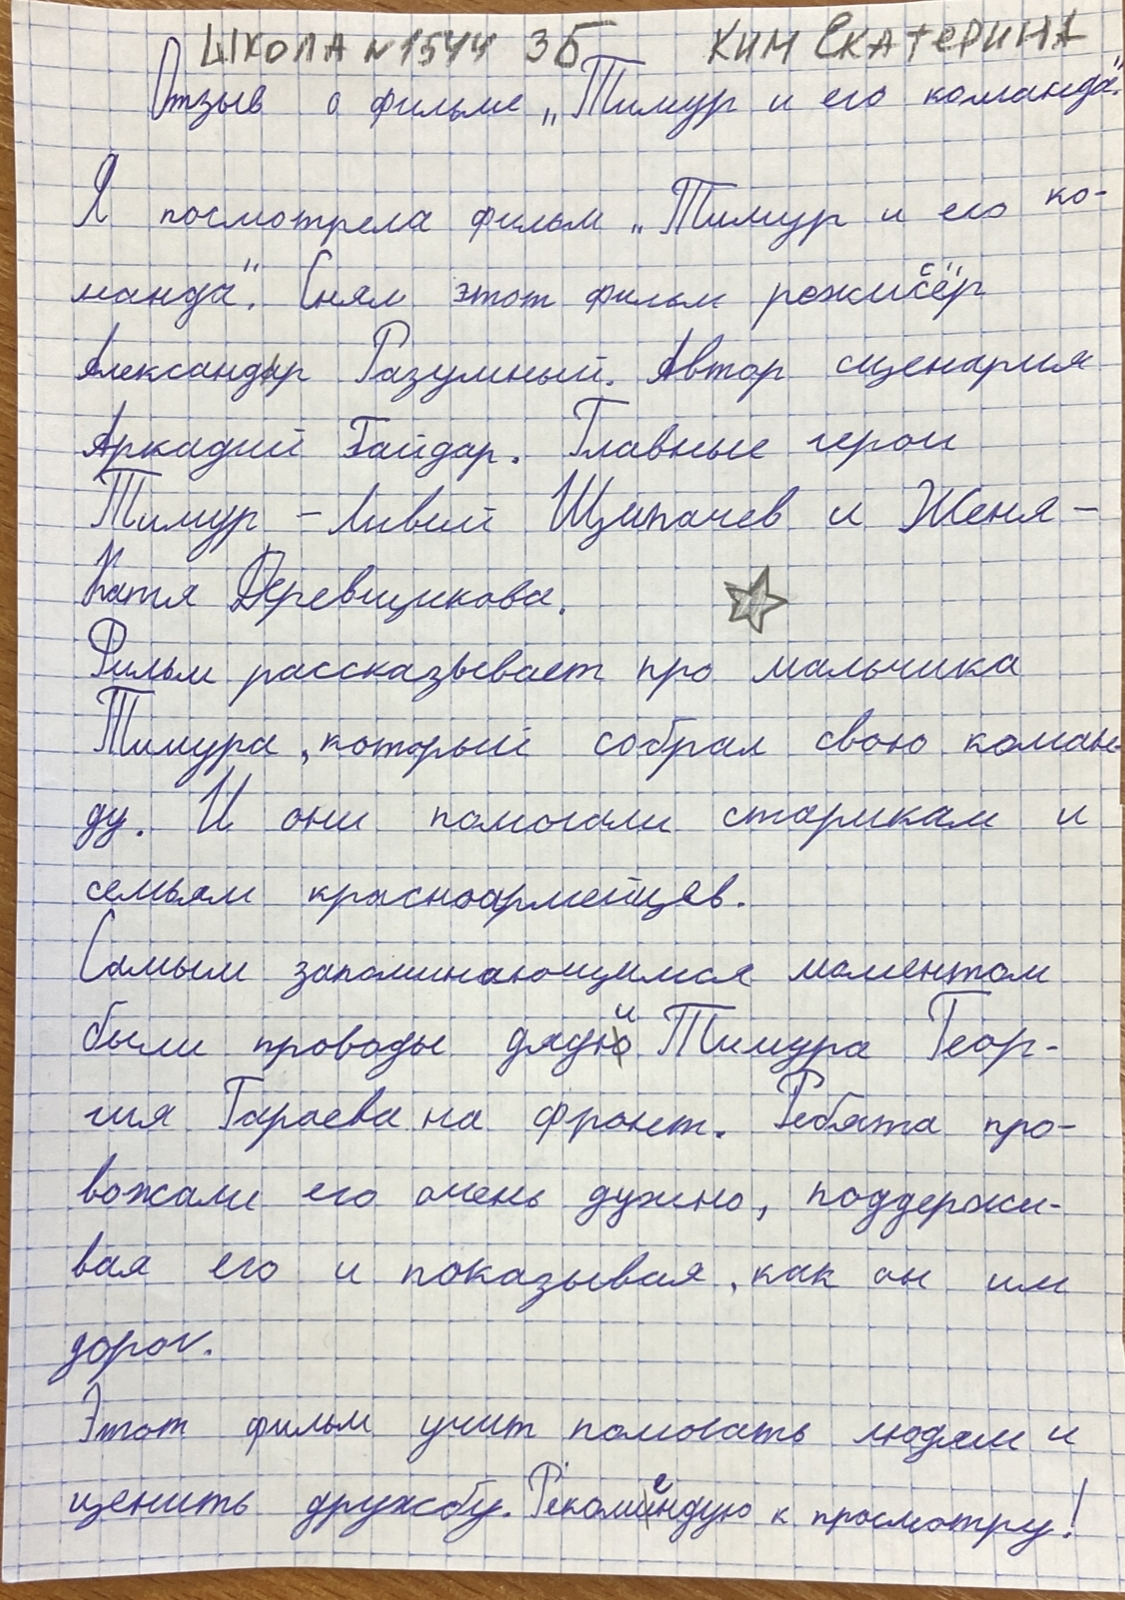 ШКОЛА №1544 3Б КИМ ЕКАТЕРИНА
Отзыв о фильме „Тимур и его команда".
Я посмотрела фильм „Тимур и его ко-
манда". Снял этот фильм режиссёр
Александр Разумный. Автор сценария
Аркадий Гайдар. Главные герои
Тимур - Ливий Щипачев и Женя -
Катя Деревщикова.
Фильм рассказывает про мальчика
Тимура, который собрал свою коман-
ду. И они помогали старикам и
семьям красноармейцев.
Самым запоминающимся моментом
были проводы дяди Тимура Геор-
гия Гараева на фронт. Ребята про-
вожали его очень дужно, поддержи-
вая его и показывая, как он им
дорог.
Этот фильм учит помогать людям и
ценить дружбу. Рекомендую к просмотру!